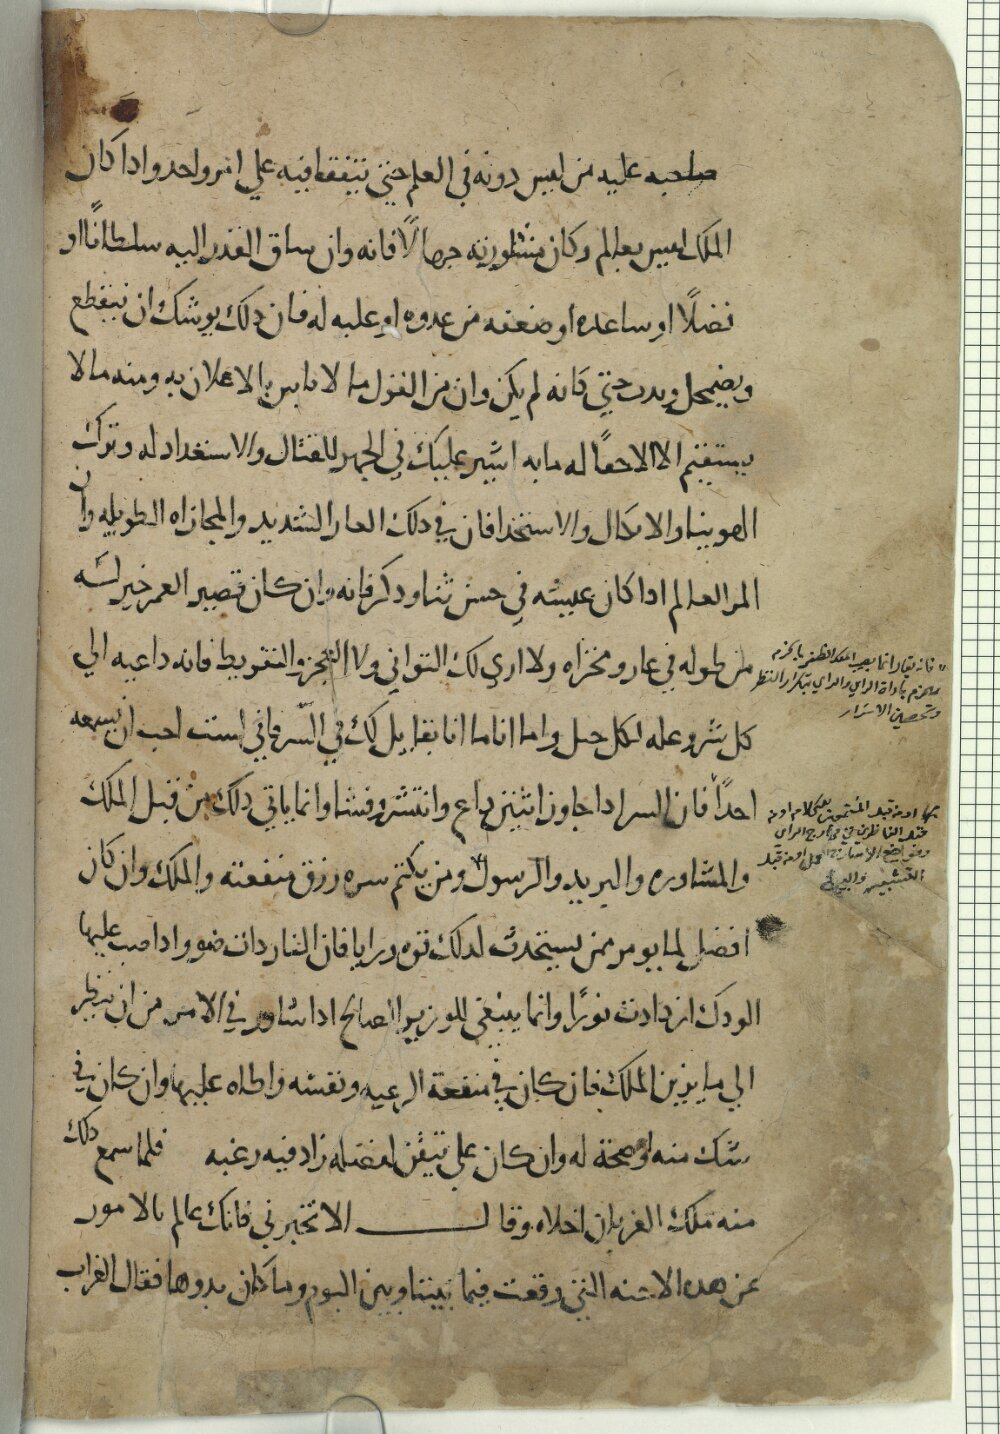 صاحبه عليه من ليس دونه في العلم حتي يتفقا فيه علي امر واحد وادا كان
الملك ليس بعالم وكان مشاورته جهالًا فانه وان ساق القدر اليه سلطانًا او
فضلًا او ساعده او ضعفه من عدوه او غلبه له فان دلك يوشك ان ينقطع
ويضمحل ويدرس حتي كانه لم يكن وان من القول ما لا باس بالاعلان به ومنه ما لا
يستقيم الا الاخفا له ما به اشير عليك في الجهر للقتال والاستعداد له وترك
الهوينا والاتكال والاستخدا فان في دلك العار الشديد والمجازاه الطويله وان
المر العالم ادا كان عيشه في حسن ثنا ودكر فانه وان كان قصير العمر خير له
من طوله في عار ومخزاه ولا اري لك التواني ولا العجز والتفريط فانه داعيه الي
كل شر وعله لكل جهل واما انا ما انا بقايل لك في السّر فاني لست احب ان يسمعه
احدًا فان السر ادا جاوز اثنين داع وانتشر وفشا وانما ياتي دلك من قبل الملك
والمشاوره والبريد والرسول ومن يكتم سره رزق منفعته والملك وان كان
افضل لما يومر ممن يستحدث لدلك توه ورايا فان النار دات ضوو ادا صب عليها
الودك ازدادت نورًا وانما ينبغي للوزير الصالح ادا شاور في الامر من ان ينظر
الي ما يزين الملك فان كان في منفعة الرعيه ونفسه واطاه عليها وان كان في
شك منه اوضحة له وان كان علي تيقن لفضله زاد فيه رغبه فلما سمع دلك
منه ملك الغربان اخلاه وقال الا تخبرني فانك عالم بالامور
عن هده الاحنه التي وقعت فيما بيننا وبين البوم وما كان بدوها فقال الغراب
فانه يقار انما يصيب الملك الظفر بالحزم
والحزم باداة الراي والراي بتكرار النظر
وتحصين الاسرار